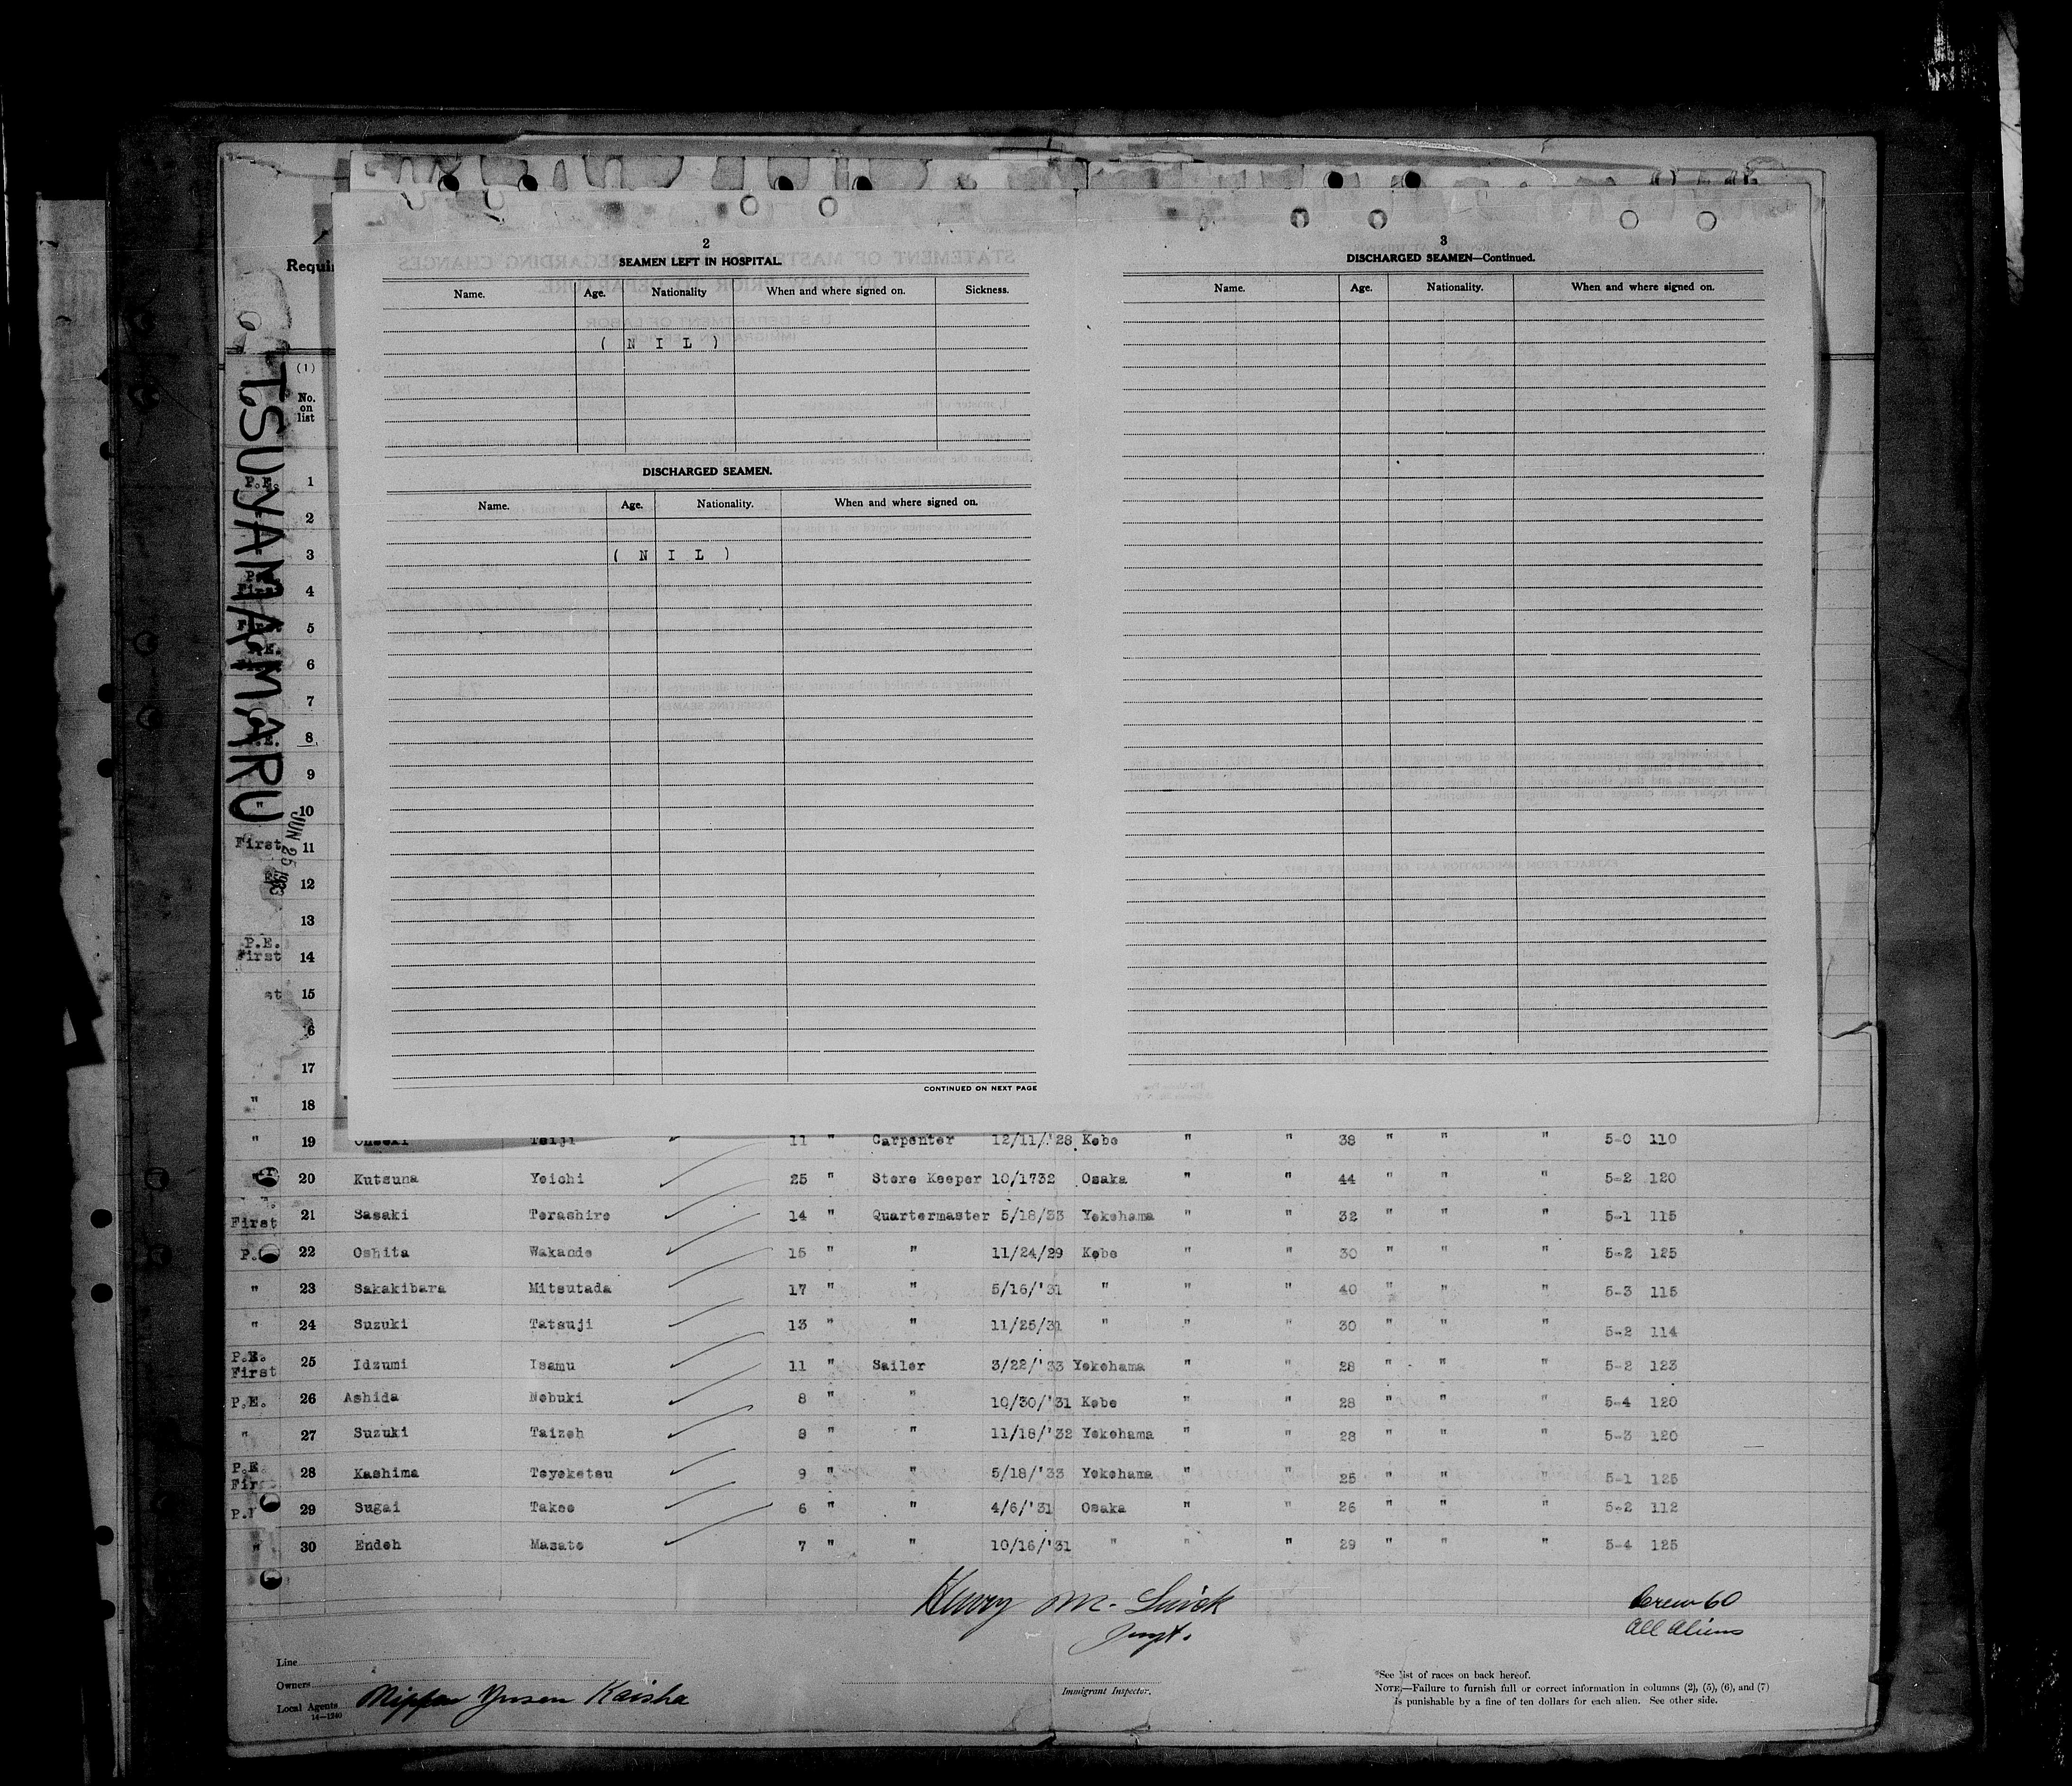 TSUYAMA MARU
JUN 25 1933
Requi
(1)
No.
on
list
P.E. 1
2
3
First 4
First 5
6
7
8
9
" 10
First 11
12
13
P.E.
First 14
st 15
6
17
" 18
2
SEAMEN LEFT IN HOSPITAL.
Name. Age. Nationality When and where signed on. Sickness.
( N I L )
DISCHARGED SEAMEN.
Name. Age. Nationality. When and where signed on.
( N I L )
CONTINUED ON NEXT PAGE
3
DISCHARGED SEAMEN—Continued.
Name. Age. Nationality. When and where signed on.
" 19 Teiji 11 " Carpenter 12/11/'28 Kobe " " 38 " " " 5-0 110
20 Kutsuna Yoichi 25 " Store Keeper 10/1732 Osaka " " 44 " " " 5-2 120
First 21 Sasaki Terashiro 14 " Quartermaster 5/18/33 Yokohama " " 32 " " " 5-1 115
P. 22 Oshita Wakando 15 " " 11/24/29 Kobe " " 30 " " " 5-2 125
" 23 Sakakibara Mitsutada 17 " " 5/16/'31 " " " 40 " " " 5-3 115
" 24 Suzuki Tatsuji 13 " " 11/25/31 " " " 30 " " " 5-2 114
P.E.
First 25 Idzumi Isamu 11 " Sailor 3/22/'33 Yokohama " " 28 " " " 5-2 123
P.E. 26 Ashida Nobuki 8 " " 10/30/'31 Kobe " " 28 " " " 5-4 120
" 27 Suzuki Taizoh 8 " " 11/18/'32 Yokohama " " 28 " " " 5-3 120
P.E
Fir 28 Kashima Toyoketsu 9 " " 5/18/'33 Yokohama " " 25 " " " 5-1 125
29 Sugai Takeo 6 " " 4/6/'31 Osaka " " 26 " " " 5-2 112
" 30 Endoh Masato 7 " " 10/16/'31 " " " 29 " " " 5-4 125
Henry M.
Crew 60
All Aliens
Line
Owners
Local Agents Nippon Yusen Kaisha
14—1240
Immigrant Inspector.
*See list of races on back hereof.
NOTE.—Failure to furnish full or correct information in columns (2), (5), (6), and (7)
is punishable by a fine of ten dollars for each alien. See other side.